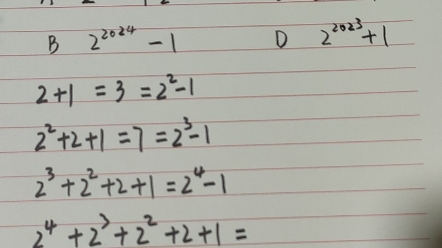 B 2²⁰²⁴ - 1 D 2²⁰²³ + 1
2 + 1 = 3 = 2² - 1
2² + 2 + 1 = 7 = 2³ - 1
2³ + 2² + 2 + 1 = 2⁴ - 1
2⁴ + 2³ + 2² + 2 + 1 =